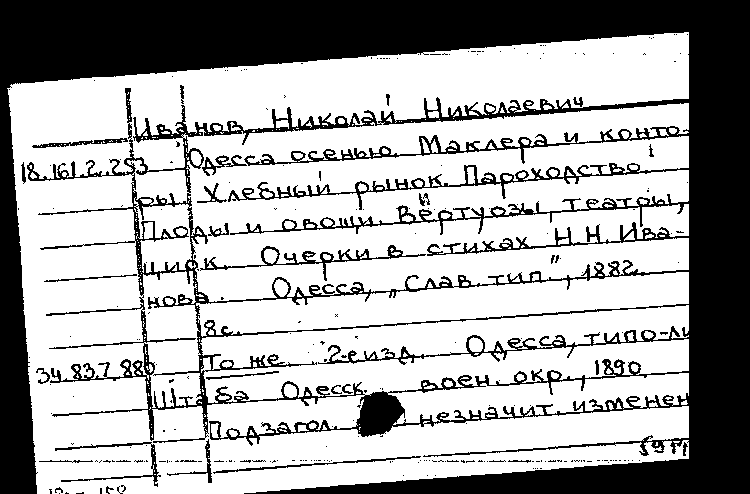 Иванов, Николай Николаевич
18.161.2.253 Одесса осенью. Маклера и конто-
ры. Хлебный рынок. Пароходство.
Плоды и овощи. Вёртуозы, театры,
цирк. Очерки в стихах Н.Н. Ива-
нова. Одесса, „Слав. тип.", 1882.
8 с.
34.83.7.880 То же. 2-е изд. Одесса, типо-ли
Штаба Одесск. воен. окр., 1890.
Подзагол. незначит. изменен